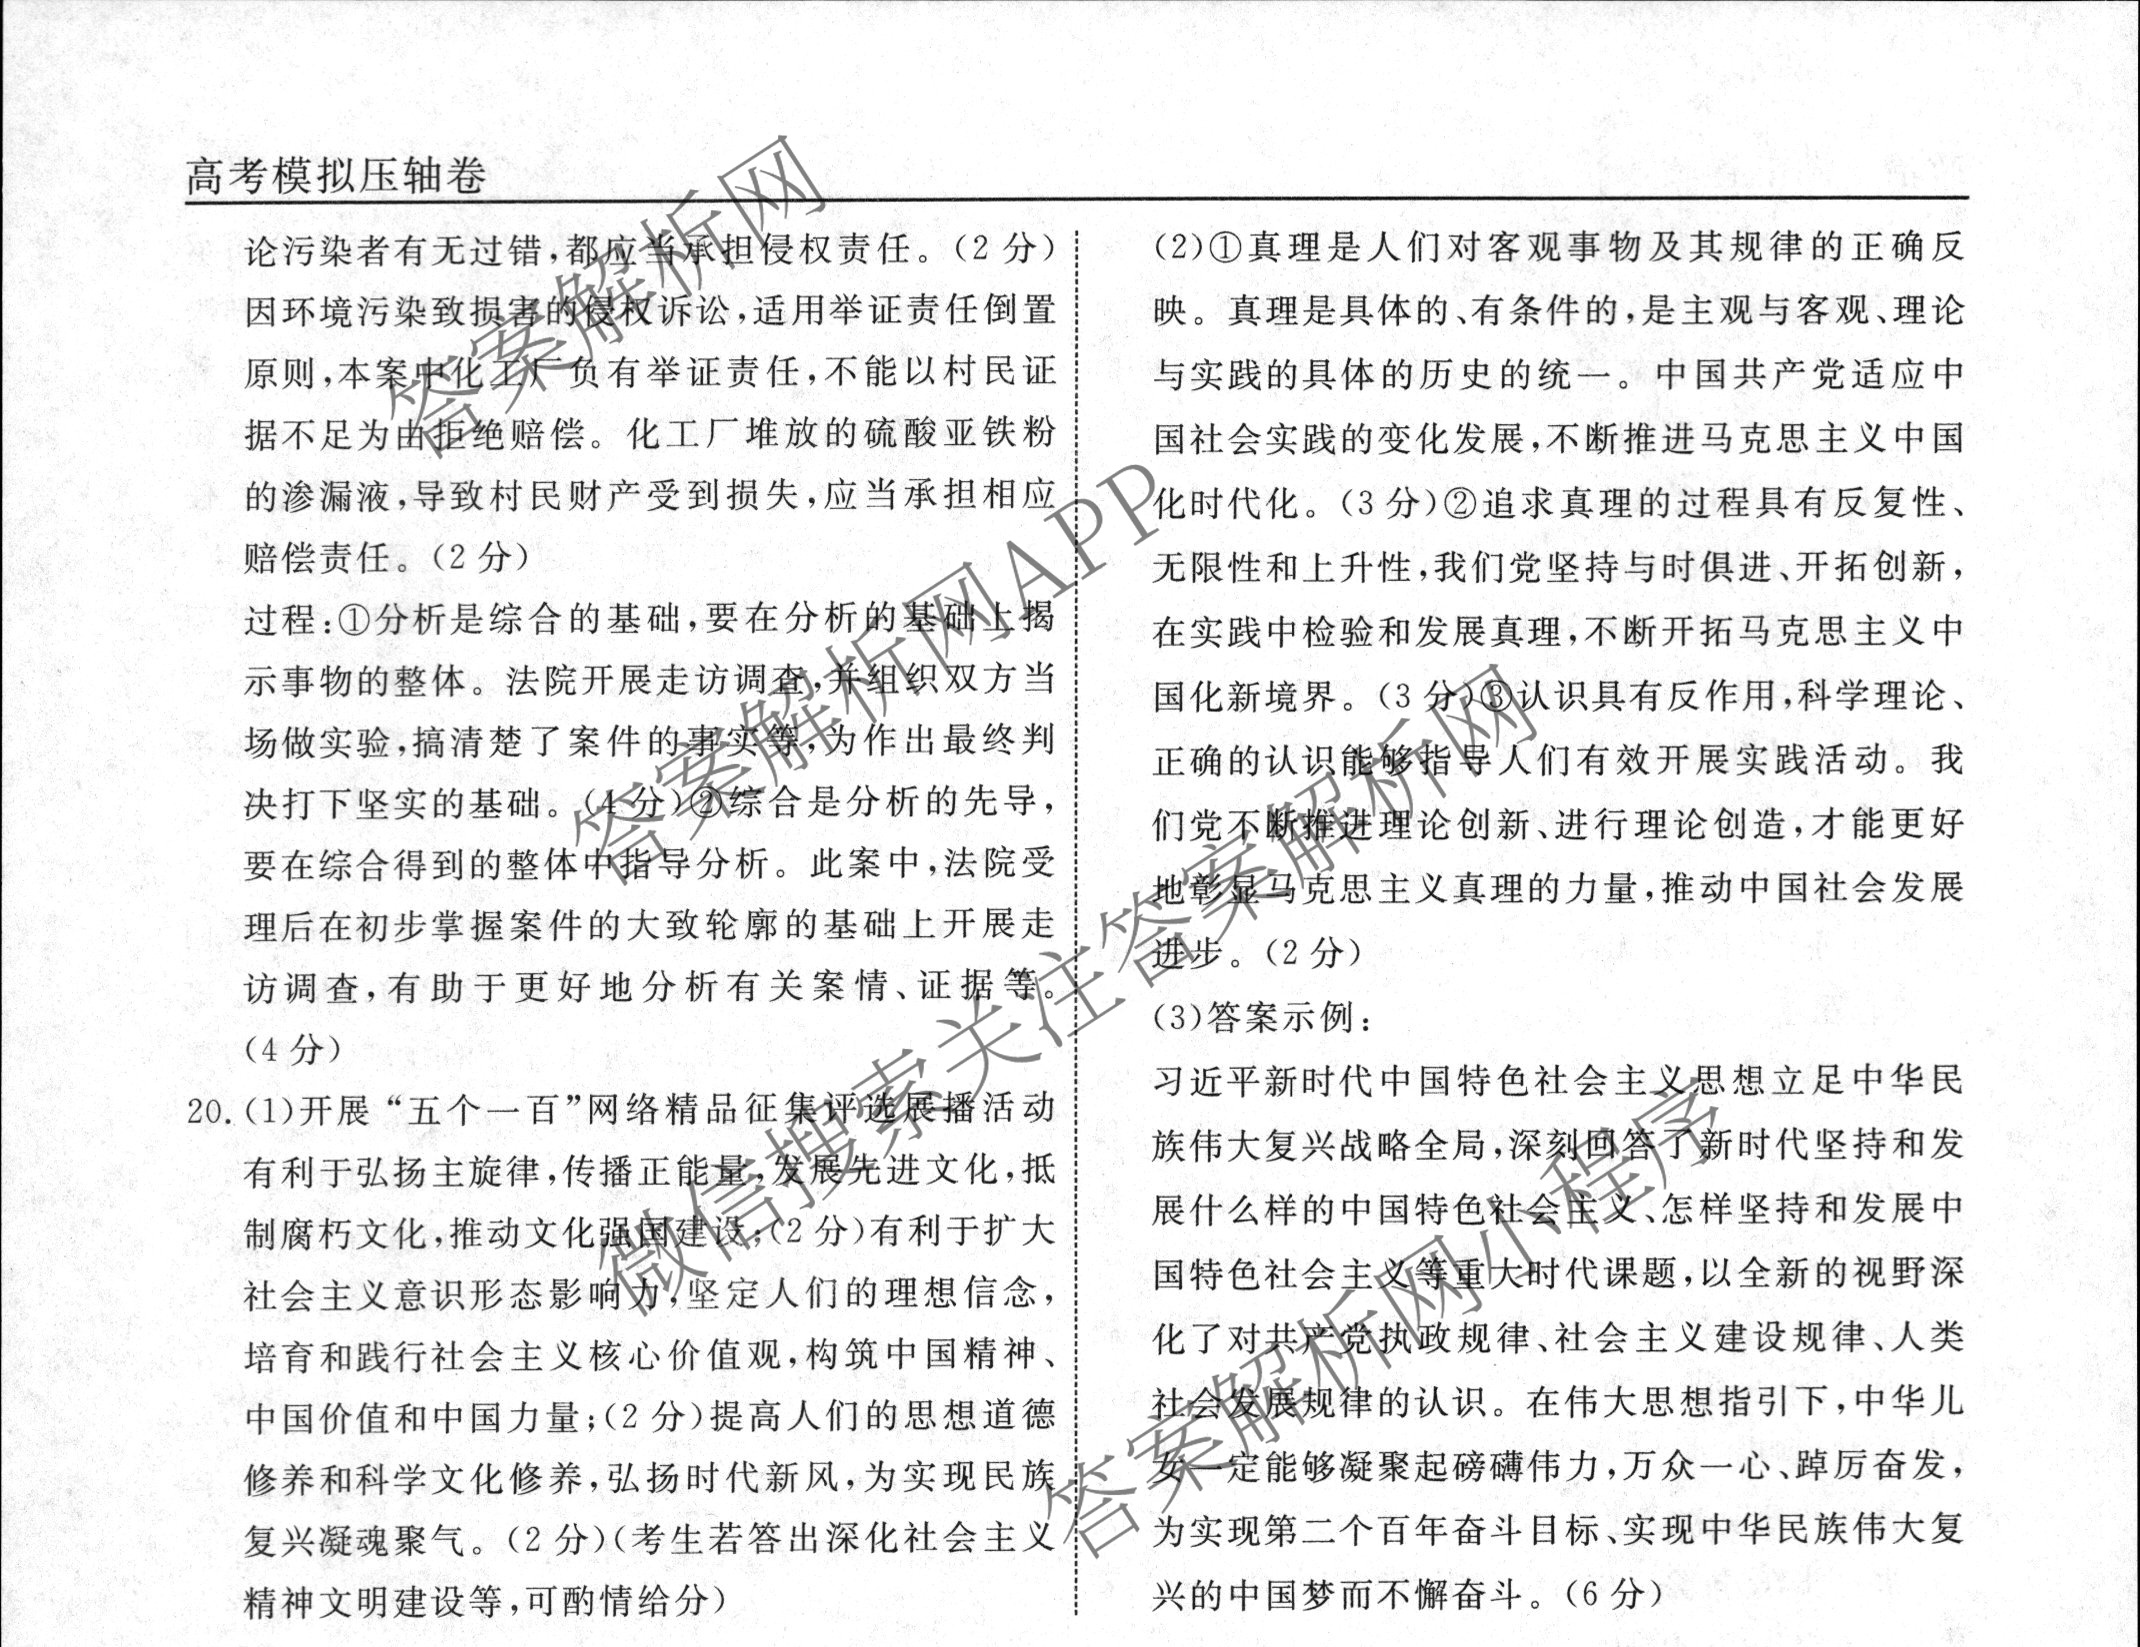 高考模拟压轴卷
论污染者有无过错,都应当承担侵权责任。(2分)
因环境污染致损害的侵权诉讼,适用举证责任倒置
原则,本案中化工厂负有举证责任,不能以村民证
据不足为由拒绝赔偿。化工厂堆放的硫酸亚铁粉
的渗漏液,导致村民财产受到损失,应当承担相应
赔偿责任。(2分)
过程:①分析是综合的基础,要在分析的基础上揭
示事物的整体。法院开展走访调查,并组织双方当
场做实验,搞清楚了案件的事实等,为作出最终判
决打下坚实的基础。(4分)②综合是分析的先导,
要在综合得到的整体中指导分析。此案中,法院受
理后在初步掌握案件的大致轮廓的基础上开展走
访调查,有助于更好地分析有关案情、证据等。
(4分)
20.(1)开展“五个一百”网络精品征集评选展播活动
有利于弘扬主旋律,传播正能量,发展先进文化,抵
制腐朽文化,推动文化强国建设;(2分)有利于扩大
社会主义意识形态影响力,坚定人们的理想信念,
培育和践行社会主义核心价值观,构筑中国精神、
中国价值和中国力量;(2分)提高人们的思想道德
修养和科学文化修养,弘扬时代新风,为实现民族
复兴凝魂聚气。(2分)(考生若答出深化社会主义
精神文明建设等,可酌情给分)
(2)①真理是人们对客观事物及其规律的正确反
映。真理是具体的、有条件的,是主观与客观、理论
与实践的具体的历史的统一。中国共产党适应中
国社会实践的变化发展,不断推进马克思主义中国
化时代化。(3分)②追求真理的过程具有反复性、
无限性和上升性,我们党坚持与时俱进、开拓创新,
在实践中检验和发展真理,不断开拓马克思主义中
国化新境界。(3分)③认识具有反作用,科学理论、
正确的认识能够指导人们有效开展实践活动。我
们党不断推进理论创新、进行理论创造,才能更好
地彰显马克思主义真理的力量,推动中国社会发展
进步。(2分)
(3)答案示例:
习近平新时代中国特色社会主义思想立足中华民
族伟大复兴战略全局,深刻回答了新时代坚持和发
展什么样的中国特色社会主义、怎样坚持和发展中
国特色社会主义等重大时代课题,以全新的视野深
化了对共产党执政规律、社会主义建设规律、人类
社会发展规律的认识。在伟大思想指引下,中华儿
女一定能够凝聚起磅礴伟力,万众一心、踔厉奋发,
为实现第二个百年奋斗目标、实现中华民族伟大复
兴的中国梦而不懈奋斗。(6分)
答案解析网
答案解析网APP
微信搜索关注答案解析网
答案解析网小程序